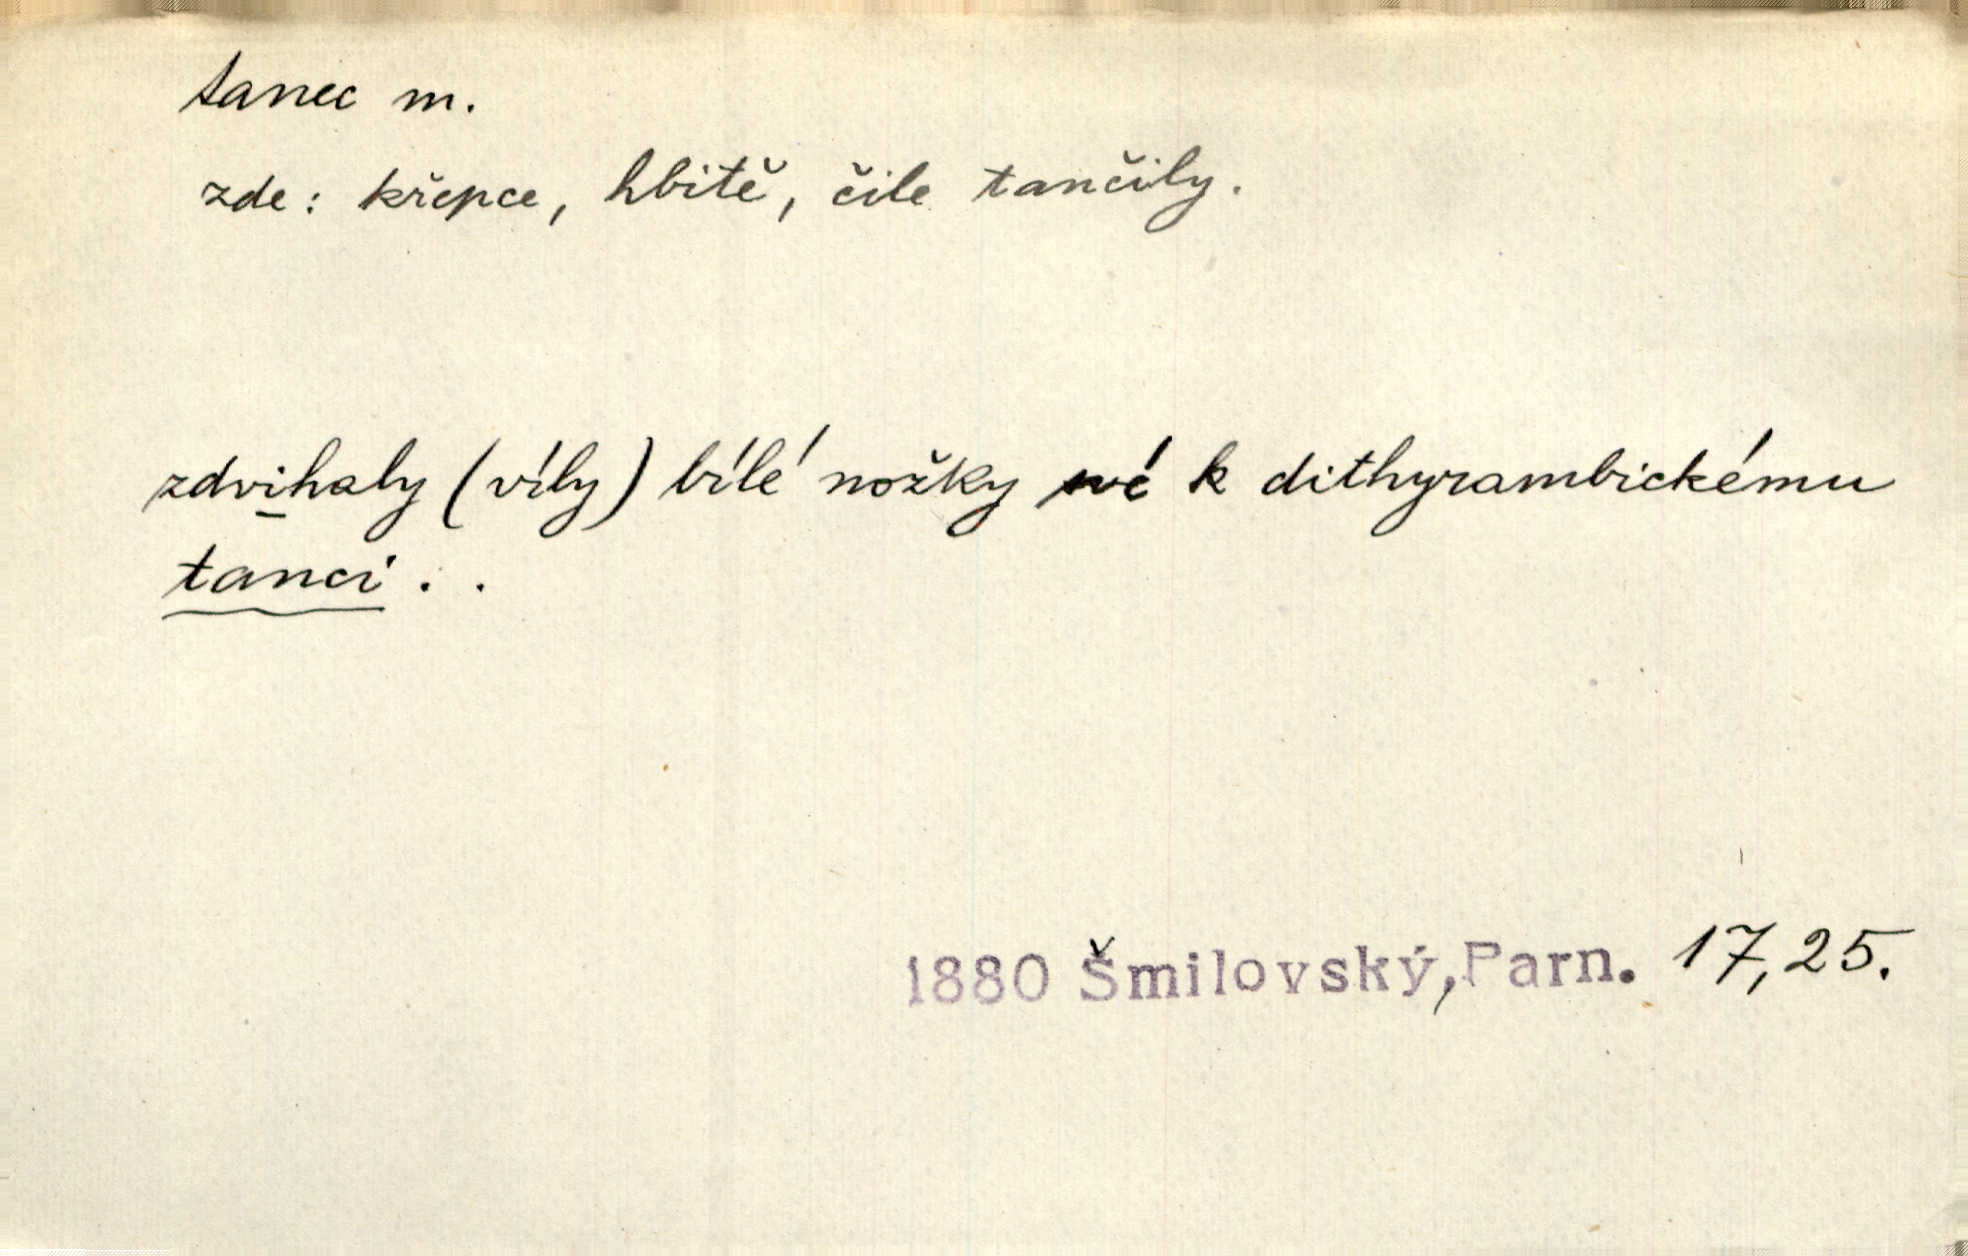 tanec m.
zde: křepce, hbitě, čile tančily.
zdvihaly (víly) bílé nožky své k dithyrambickému
tanci . .
1880 Šmilovský, Parn. 17, 25.